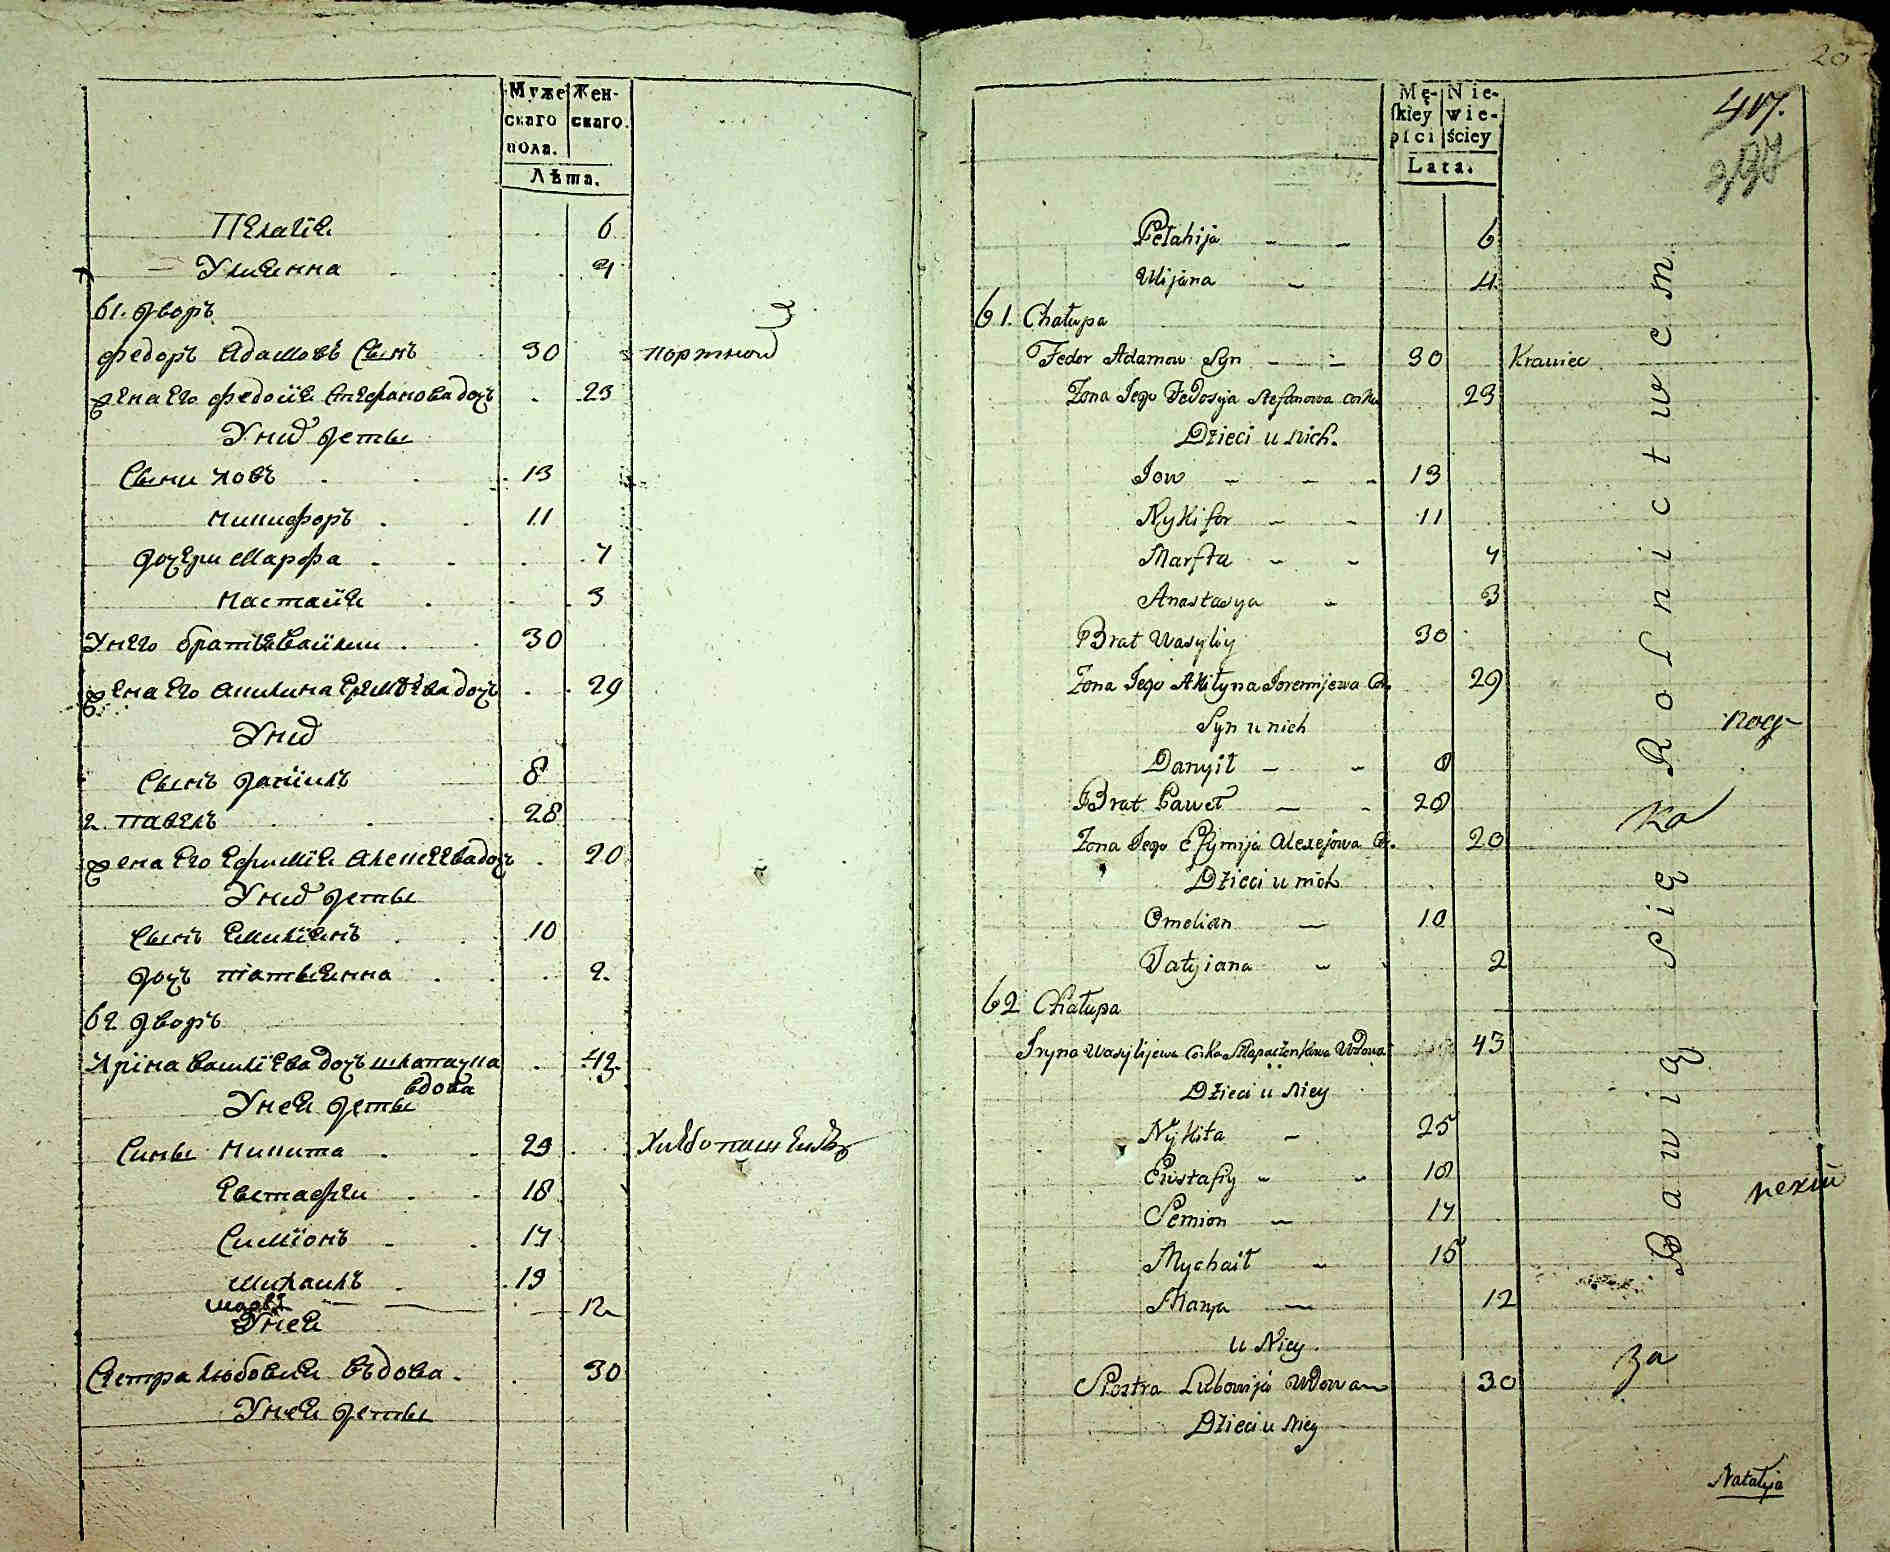 Муже Жен-
скаго скаго.
пола.
Лѣта.
Пелагіе 6
Улиянна 4
61. дворъ
Федоръ Адамовъ Сынъ 30 портной
жена Его Федосіе Стефанова дочъ 23
У них дети
Сыни Иовъ 13
Никифоръ 11
дочери Марфа 7
Настасіе 3
У него братья Василии 30
жена Его Акилина Еремѣева дочъ 29
У них
Сынъ Даніилъ 8
2 Павелъ 28
жена Его Ефиміе Алексеева дочъ 20
У них дети
Сынъ Емиліянъ 10
дочъ Татьянна 2
62 дворъ
Иріна Василіева дочъ 42
вдова
У неи дети
Сины Никита 23
Евстафеи 18
Симіонъ 17
Михаилъ 13
12
У неи
Сестра Любовие въдова 30
У неи дети
20
Mę- Nie-
ſkiey wie-
płci ściey
Lata.
417.
397
Pełahija - - 6
Ulijana - 4
61. Chałupa
Fedor Adamow Syn - - 30 Krawiec
Zona Jego Fedosya Stefanowa corka 23
Dzieci u nich.
Jow - - - 13
Nykifor - - 11
Marfta - - 7
Anastasya - 3
Brat Wasyliy 30
Zona Jego Akiłyna Joremijewa C. 29
Syn u nich
Danyił - - 8
Brat Paweł - - 28
Zona Jego Efymija Alexejowa C. 20
Dzieci u nich
Omelian - 10
Tatyiana - 2
62 Chałupa
Jryna Wasylijewa Corka Wdowa 43
Dzieci u Niey
Nykita - 25
Eustafiy - - 18
Semion - 17
Mychaił - 15
Marya - 12
u Niey.
Siostra Lubowija Wdowa 30
Dzieci u Niey
Bawią się Rolnictwem
ка
за
Natalyja